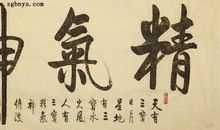 www.zgbnys.com
精氣神
天有三寶
日月星地
有三寶水
火風
人有三寶
精氣
神